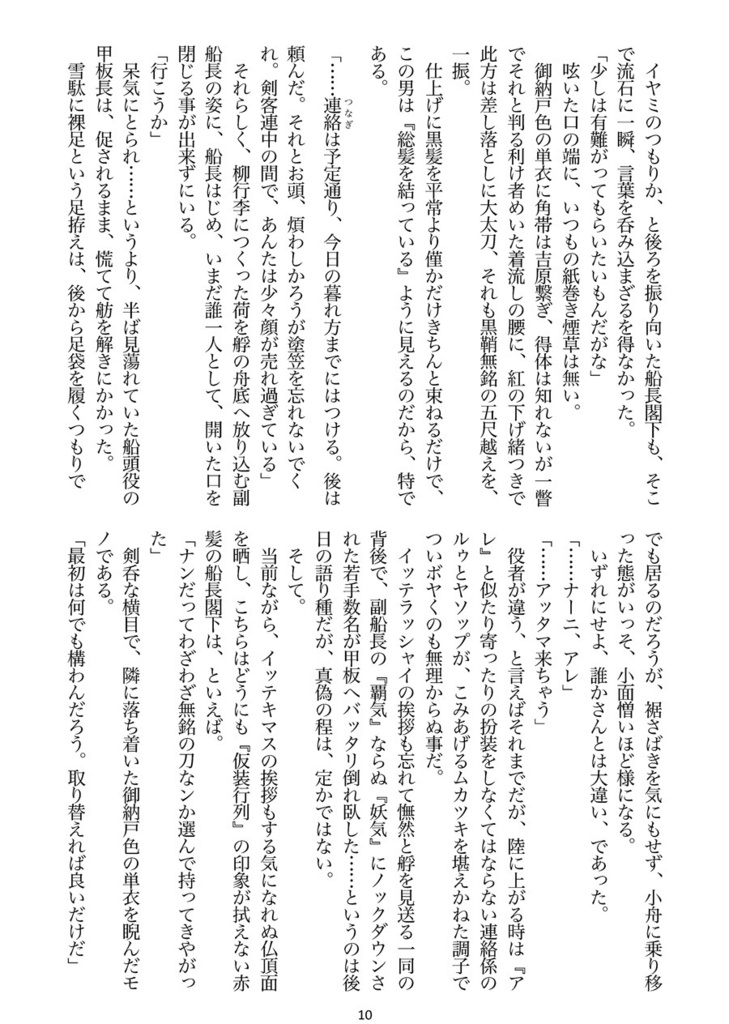 イヤミのつもりか、と後ろを振り向いた船長閣下も、そこ
で流石に一瞬、言葉を呑み込まざるを得なかった。
「少しは有難がってもらいたいもんだがな」
呟いた口の端に、いつもの紙巻き煙草は無い。
御納戸色の単衣に角帯は吉原繋ぎ、得体は知れないが一瞥
でそれと判る利け者めいた着流しの腰に、紅の下げ緒つきで
此方は差し落としに大太刀、それも黒鞘無銘の五尺越えを、
一振。
仕上げに黒髪を平常より僅かだけきちんと束ねるだけで、
この男は『総髪を結っている』ように見えるのだから、特で
ある。
「……連絡は予定通り、今日の暮れ方までにはつける。後は
つなぎ
頼んだ。それとお頭、煩わしかろうが塗笠を忘れないでく
れ。剣客連中の間で、あんたは少々顔が売れ過ぎている」
それらしく、柳行李につくった荷を艀の舟底へ放り込む副
船長の姿に、船長はじめ、いまだ誰一人として、開いた口を
閉じる事が出来ずにいる。
「行こうか」
呆気にとられ……というより、半ば見蕩れていた船頭役の
甲板長は、促されるまま、慌てて舫を解きにかかった。
雪駄に裸足という足拵えは、後から足袋を履くつもりで
でも居るのだろうが、裾さばきを気にもせず、小舟に乗り移
った態がいっそ、小面憎いほど様になる。
いずれにせよ、誰かさんとは大違い、であった。
「……ナーニ、アレ」
「……アッタマ来ちゃう」
役者が違う、と言えばそれまでだが、陸に上がる時は『ア
レ』と似たり寄ったりの扮装をしなくてはならない連絡係の
ルゥとヤソップが、こみあげるムカツキを堪えかねた調子で
ついボヤくのも無理からぬ事だ。
イッテラッシャイの挨拶も忘れて憮然と艀を見送る一同の
背後で、副船長の『覇気』ならぬ『妖気』にノックダウンさ
れた若手数名が甲板へバッタリ倒れ臥した……というのは後
日の語り種だが、真偽の程は、定かではない。
そして。
当前ながら、イッテキマスの挨拶もする気になれぬ仏頂面
を晒し、こちらはどうにも『仮装行列』の印象が拭えない赤
髪の船長閣下は、といえば。
「ナンだってわざわざ無銘の刀なンか選んで持ってきやがっ
た」
剣呑な横目で、隣に落ち着いた御納戸色の単衣を睨んだモ
ノである。
「最初は何でも構わんだろう。取り替えれば良いだけだ」
10